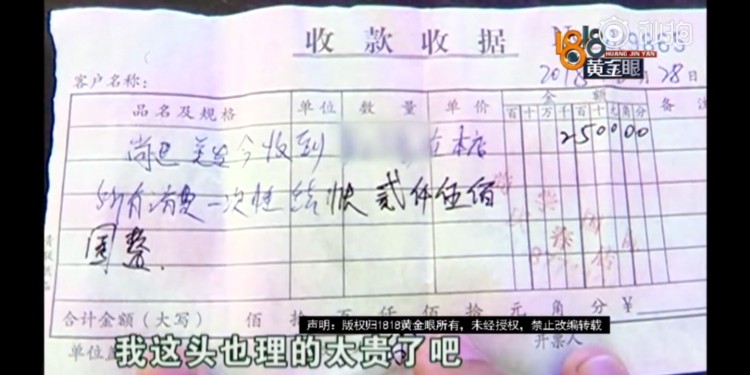 收款收据
1818
黄金眼
HUANG JIN YAN
客户名称：
28日
品名及规格 单位 数量 单价 金额 备注
百十万千百十元角分
250000
今收到 在本店
所有消费一次性结账 贰仟伍佰
圆整.
合计金额（大写） 佰 拾 万 仟 佰 拾 元 角 分 ¥
声明：版权归1818黄金眼所有，未经授权，禁止改编转载
开票人
我这头也理的太贵了吧